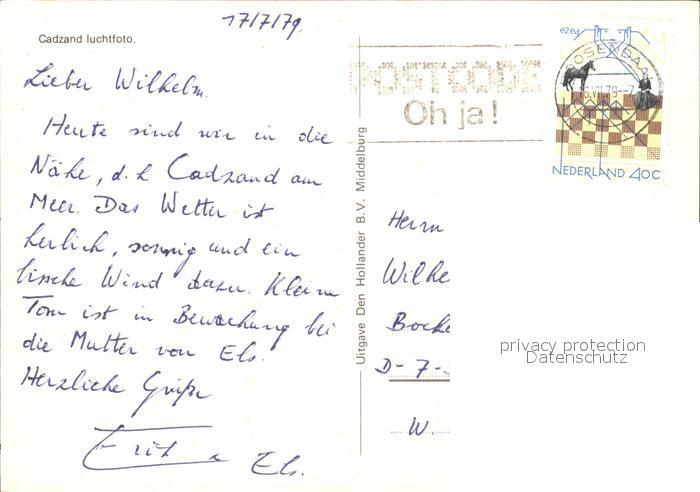 17/7/79.
Cadzand luchtfoto.
Lieber Wilhelm.
Heute sind wir in die
Nähe, d.h Cadzand am
Meer. Das Wetter ist
herlich, sonnig und ein
bissche Wind dazu. Kleine
Tom ist in Bewachung bei
die Mutter von Els.
Herzliche Grüße
Erik & Els.
Uitgave Den Hollander B.V. Middelburg
POSTCODE
Oh ja!
ROSENDAAL
VII.79
e2e4
NEDERLAND 40C
Herrn
Wilhe
Bocke
D-7-
W.
privacy protection
Datenschutz